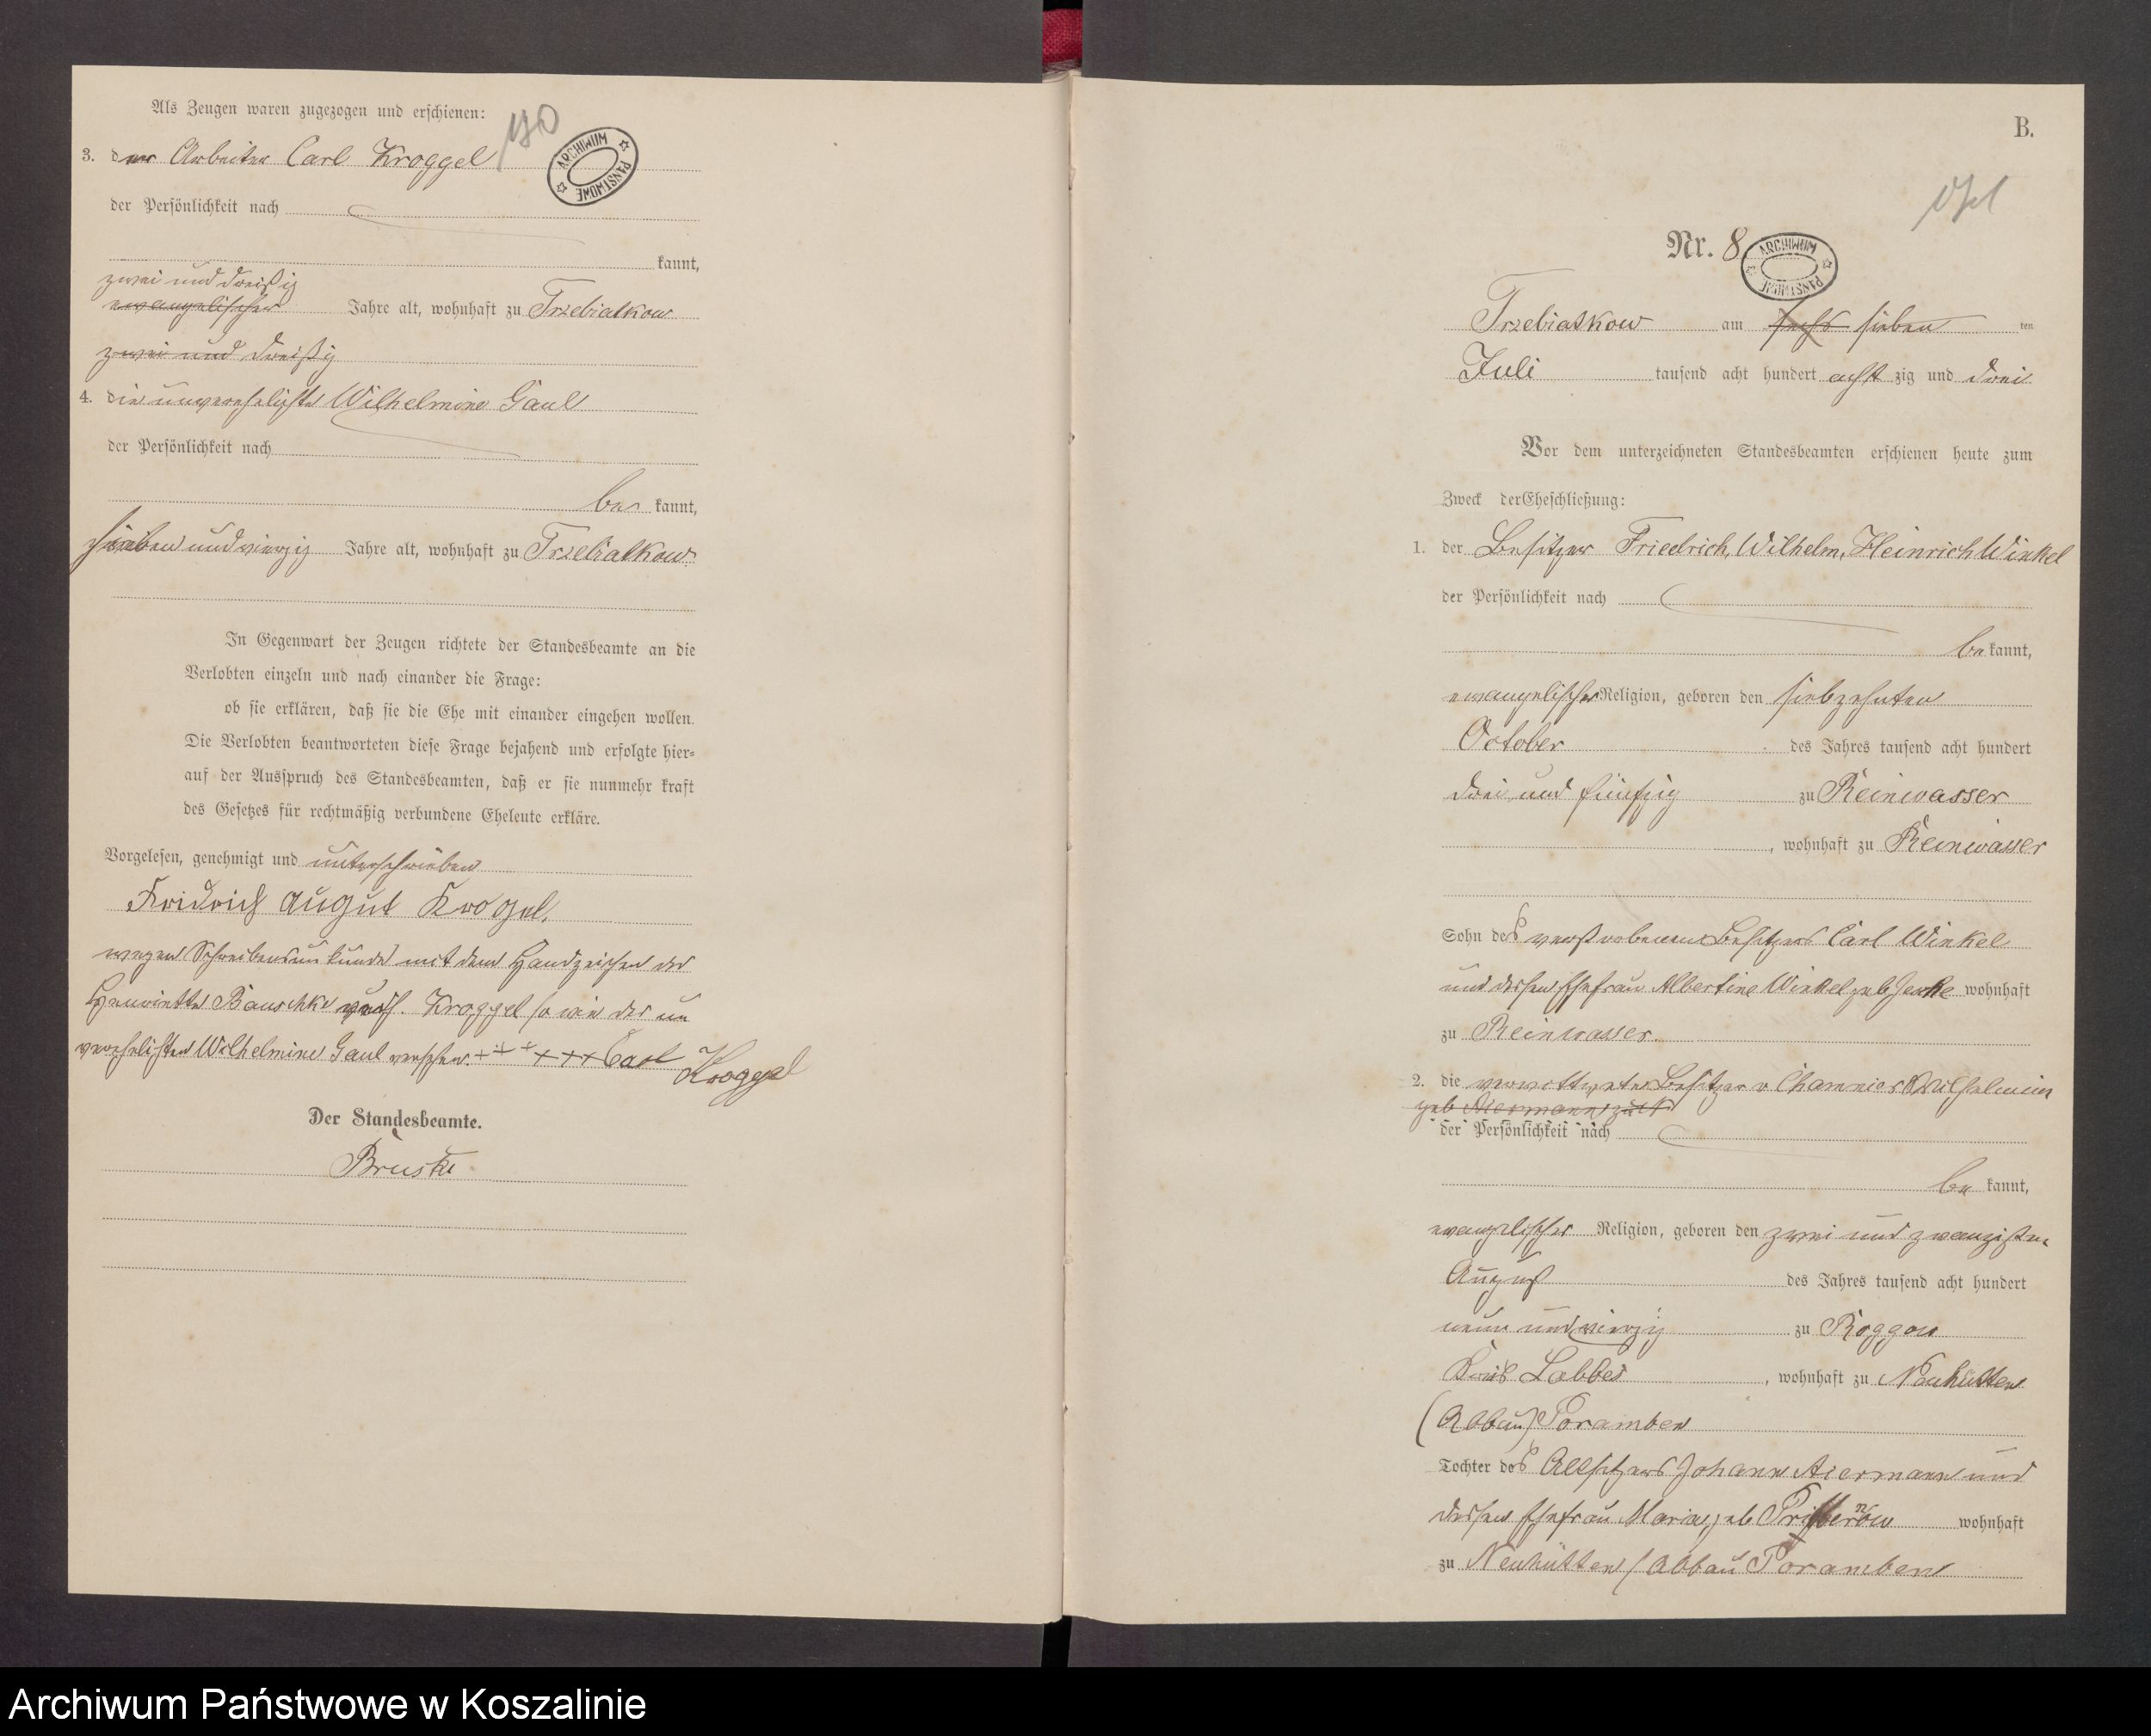 Als Zeugen waren zugezogen und erschienen:
190
ARCHIWUM PAŃSTWOWE
3. der Arbeiter Carl Kroggel
der Persönlichkeit nach
kannt,
zwei und dreißig
evangelischer Jahre alt, wohnhaft zu Trzebiatkow
zwei und dreißig
4. die unverehelichte Wilhelmine Gaul
der Persönlichkeit nach
be kannt,
sieben und vierzig Jahre alt, wohnhaft zu Trzebiatkow.
In Gegenwart der Zeugen richtete der Standesbeamte an die
Verlobten einzeln und nach einander die Frage:
ob sie erklären, daß sie die Ehe mit einander eingehen wollen.
Die Verlobten beantworteten diese Frage bejahend und erfolgte hier-
auf der Ausspruch des Standesbeamten, daß er sie nunmehr kraft
des Gesetzes für rechtmäßig verbundene Eheleute erkläre.
Vorgelesen, genehmigt und unterschrieben
Fridrich Augut Krogel.
wegen Schreibensunkunde mit dem Handzeichen der
Henriette Bauschke verehl. Kroggel so wie der un
verehelichten Wilhelmine Gaul versehen. +++ +++ Carl Kroggel
Der Standesbeamte.
Bruske
B.
191
Nr. 8
ARCHIWUM PAŃSTWOWE
Trzebiatkow am sechs sieben ten
Juli tausend acht hundert acht zig und drei
Vor dem unterzeichneten Standesbeamten erschienen heute zum
Zweck der Eheschließung:
1. der Besitzer Friedrich, Wilhelm, Heinrich Winkel
der Persönlichkeit nach
be kannt,
evangelischer Religion, geboren den siebzehnten
October des Jahres tausend acht hundert
drei und fünfzig zu Reinwasser
, wohnhaft zu Reinwasser
Sohn des verstorbenen Besitzers Carl Winkel
und dessen Ehefrau Albertine Winkel geb. wohnhaft
zu Reinwasser.
2. die verwittwete Besitzer v Chamier Wilhelmine
geb Aiermann
der Persönlichkeit nach
be kannt,
evangelischer Religion, geboren den zwei und zwanzigsten
August des Jahres tausend acht hundert
neun und vierzig zu Roggow
Kreis Labbes , wohnhaft zu Neuhütten
(Abbau) Poramben
Tochter des Altsitzers Johann Aiermann und
dessen Ehefrau Maria, geb wohnhaft
zu Neuhütten (Abbau Poramben
Archiwum Państwowe w Koszalinie